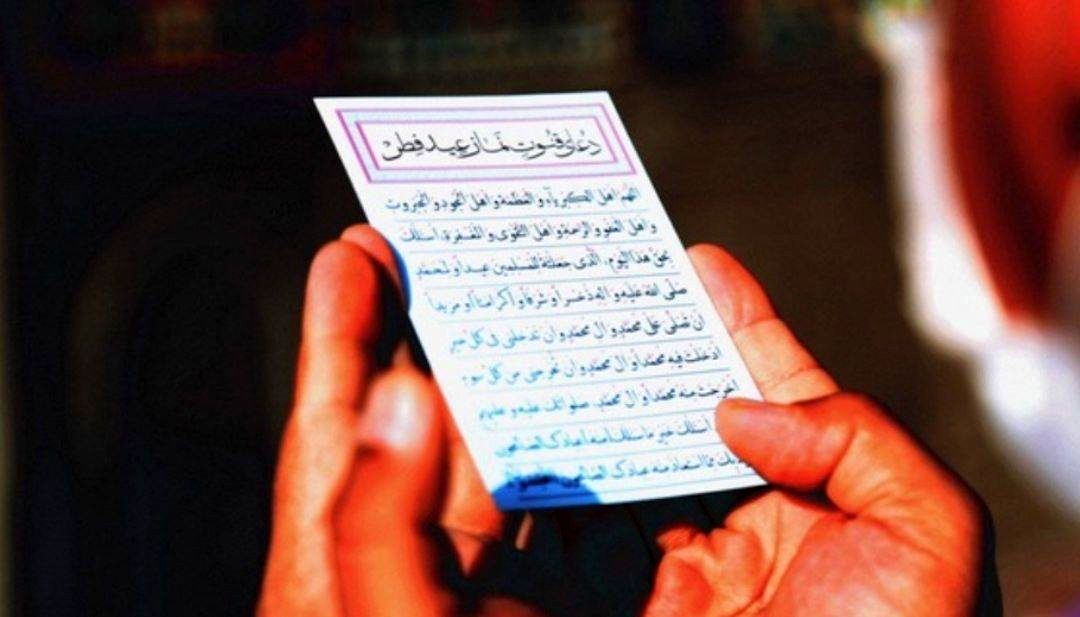 دُعای قُنوتِ نَماز عید فِطر
اللّهم اهل الکبریآء و العظمة و اهل الجود و الجبروت
و اهل العفو و الرحمة و اهل التقوی و المغفرة، اسئلک
بحق هذا الیوم، الّذی جعلتهُ للمسلمین عیداً و لمحمّدٍ
صلّی الله علیه و اله ذخراً و شرفاً و کرامتاً و مزیداً
ان تصلّی علی محمّدٍ و ال محمّدٍ و ان تدخلنی فی کل خیر
ادخلت فیه محمّداً و ال محمّدٍ و ان تخرجنی من کل سوء
اخرجت منه محمّداً و ال محمّدٍ، صلواتک علیه و علیهم
اسئلک خیر ما سئلک منه عبادک الصالحون
بک ممّا استعاذ منه عبادک